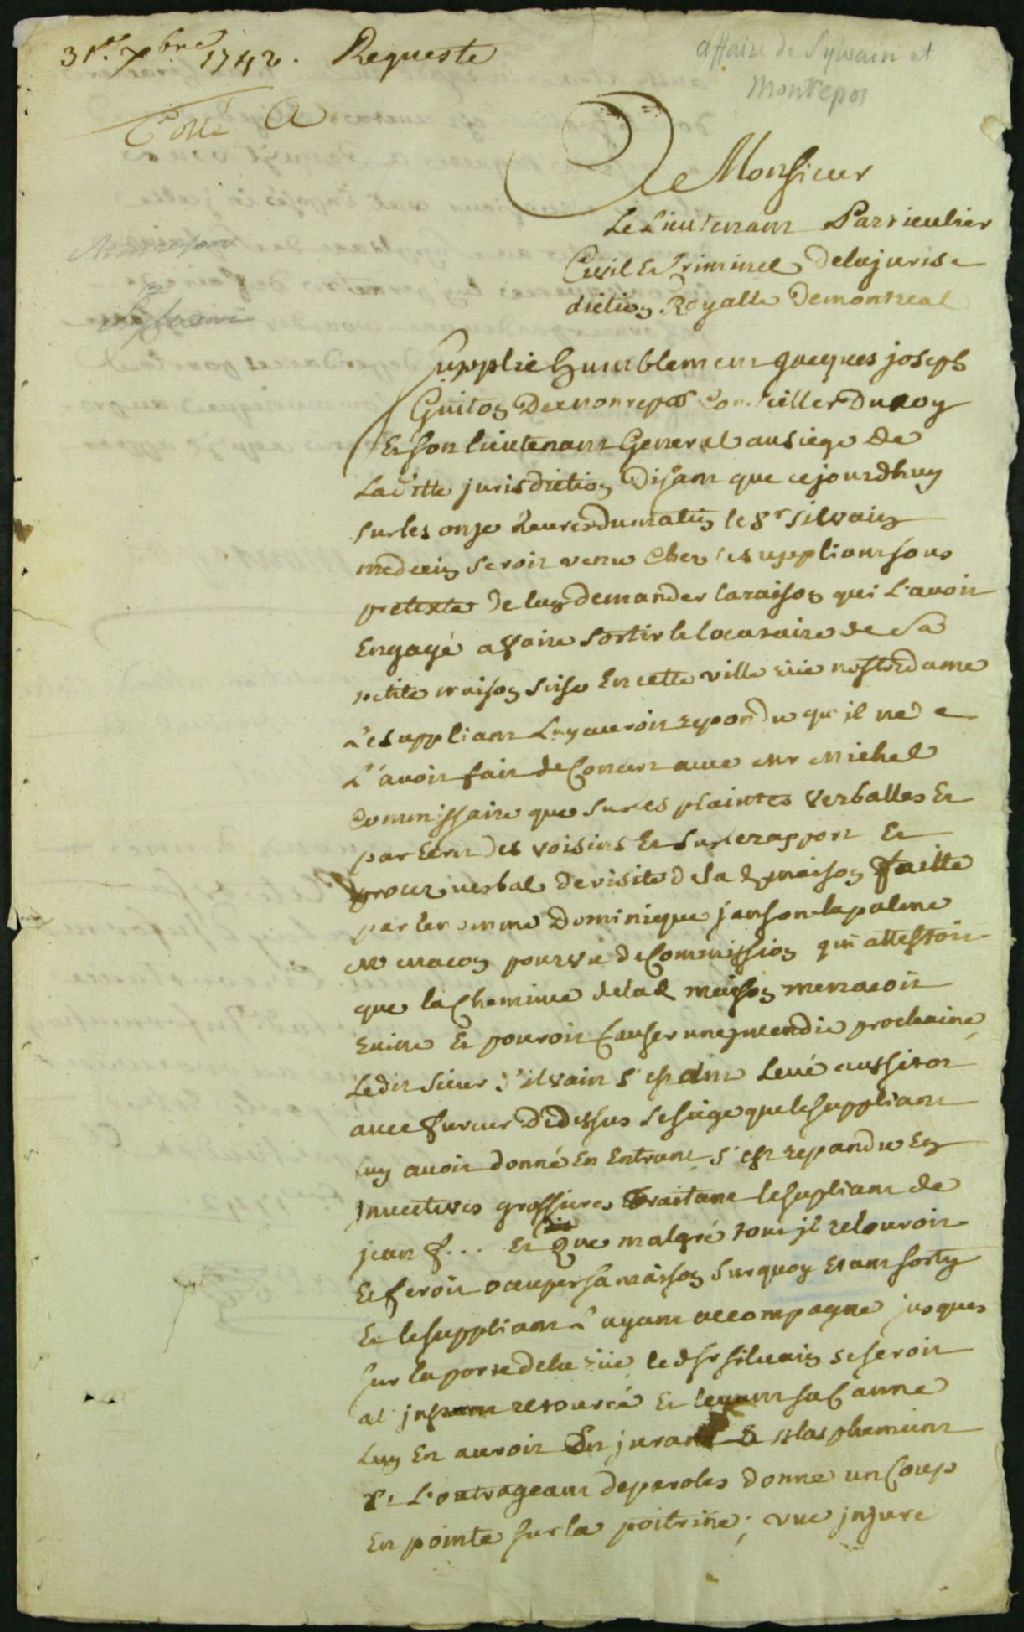 31e. xbre 1742. Requeste
affaire de Sylvain et
Monrepos
Cotté A
A Monsieur
Le Lieutenant Particulier
Civil Et Criminel delajuris=
diction Royalle demontreal
Supplie humblement jacques joseph
Guiton demonrepos Conseiller Duroy
Et son lieutenant General ausiege de
Laditte jurisdiction Disant que cejourdhuy
sur les onze heures dumatin le Sr silvain
medecin seroit venu chez lesuppliant sous
pretexte de luy demander laraison qui L'avoit
Engagé afaire sortir le locataire de sa
petite maison sise En cette ville rüe nostredame
Lesuppliant Luy auroit repondu qu'il ne
L'avoit fait de Concert avec Mr Michel
Commissaire que sur les plaintes verballes Et
par Ecrit des voisins Et sur lerapport Et
procez verbal de visite de lad maison faitte
par lenommé Dominique janson lapalme
Me macon pourvu de Commission qui attestoit
que la Cheminée delad maison menacoit
ruine Et pouroit Causer une jncendie prochaine,
Ledit sieur silvain s'est levé aussitot
avec fureur de dessus lesiege que lesuppliant
luy avoit donné En Entrant s'est repandu En
jnvectives grossieres traitant lesupliant de
jean f... Et que malgré tout jl relouroit
Et feroit occuper sa maison surquoy Etant sorty
Et lesuppliant L'ayant accompagné jusques
sur laporte dela rüe ledt sr silvain seseroit
al'jnstant retourné Et levant sa Canne
Luy En auroit En jurant Et blasphemant
Et L'outrageant deparoles donné un Coup
En pointe sur la poitrine; une jnjure